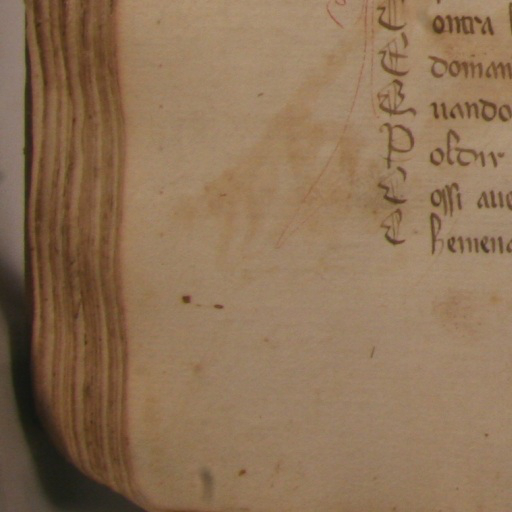 C ontra
E doman
E uando
P oscur
C ossi aue
C hemena